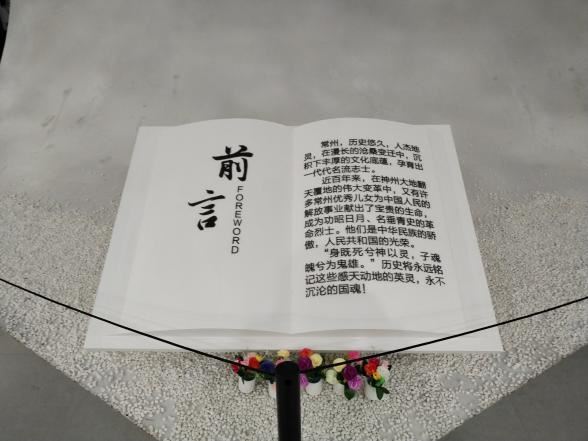 前言
FOREWORD
常州，历史悠久，人杰地
灵，在漫长的沧桑变迁中，沉
积下丰厚的文化底蕴，孕育出
一代代名流志士。
近百年来，在神州大地翻
天覆地的伟大变革中，又有许
多常州优秀儿女为中国人民的
解放事业献出了宝贵的生命，
成为功昭日月、名垂青史的革
命烈士。他们是中华民族的骄
傲，人民共和国的光荣。
“身既死兮神以灵，子魂
魄兮为鬼雄。”历史将永远铭
记这些感天动地的英灵，永不
沉沦的国魂！